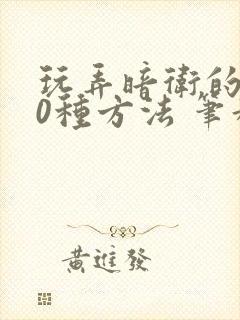 玩弄暗衛的
0種方法 筆
黃進發